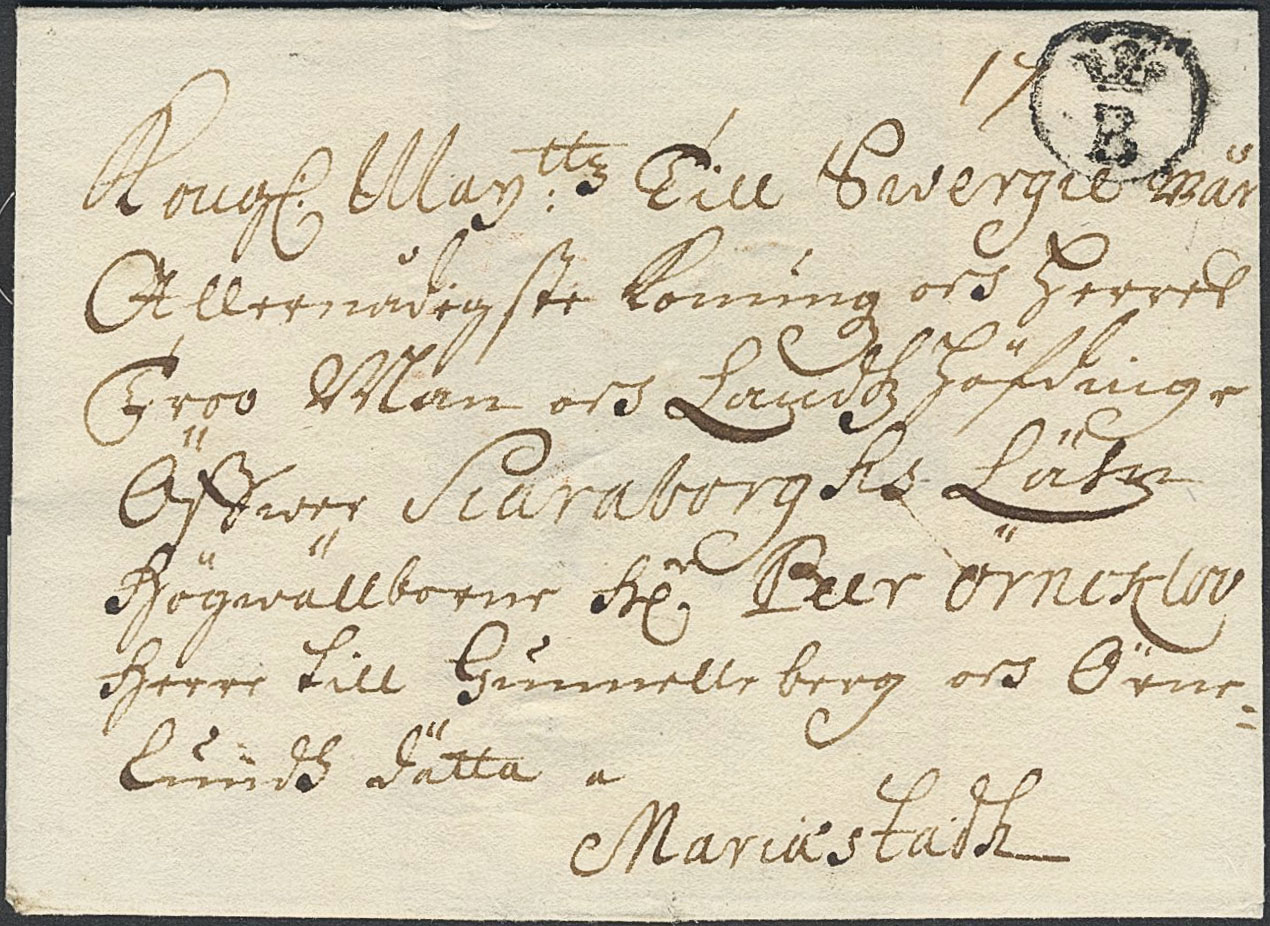 17
B
Kongl. May:ttz Till Swergie wår
Allernådigste Konung och Herres
Troo Man och Landtz Höfdinge
Öfwer Scaraborghs Lähn
Högwällborne Hr. Peer Örneklou
Herre till Gunnelleberg och Örne=
Lundh dätta a
Mariæstadh